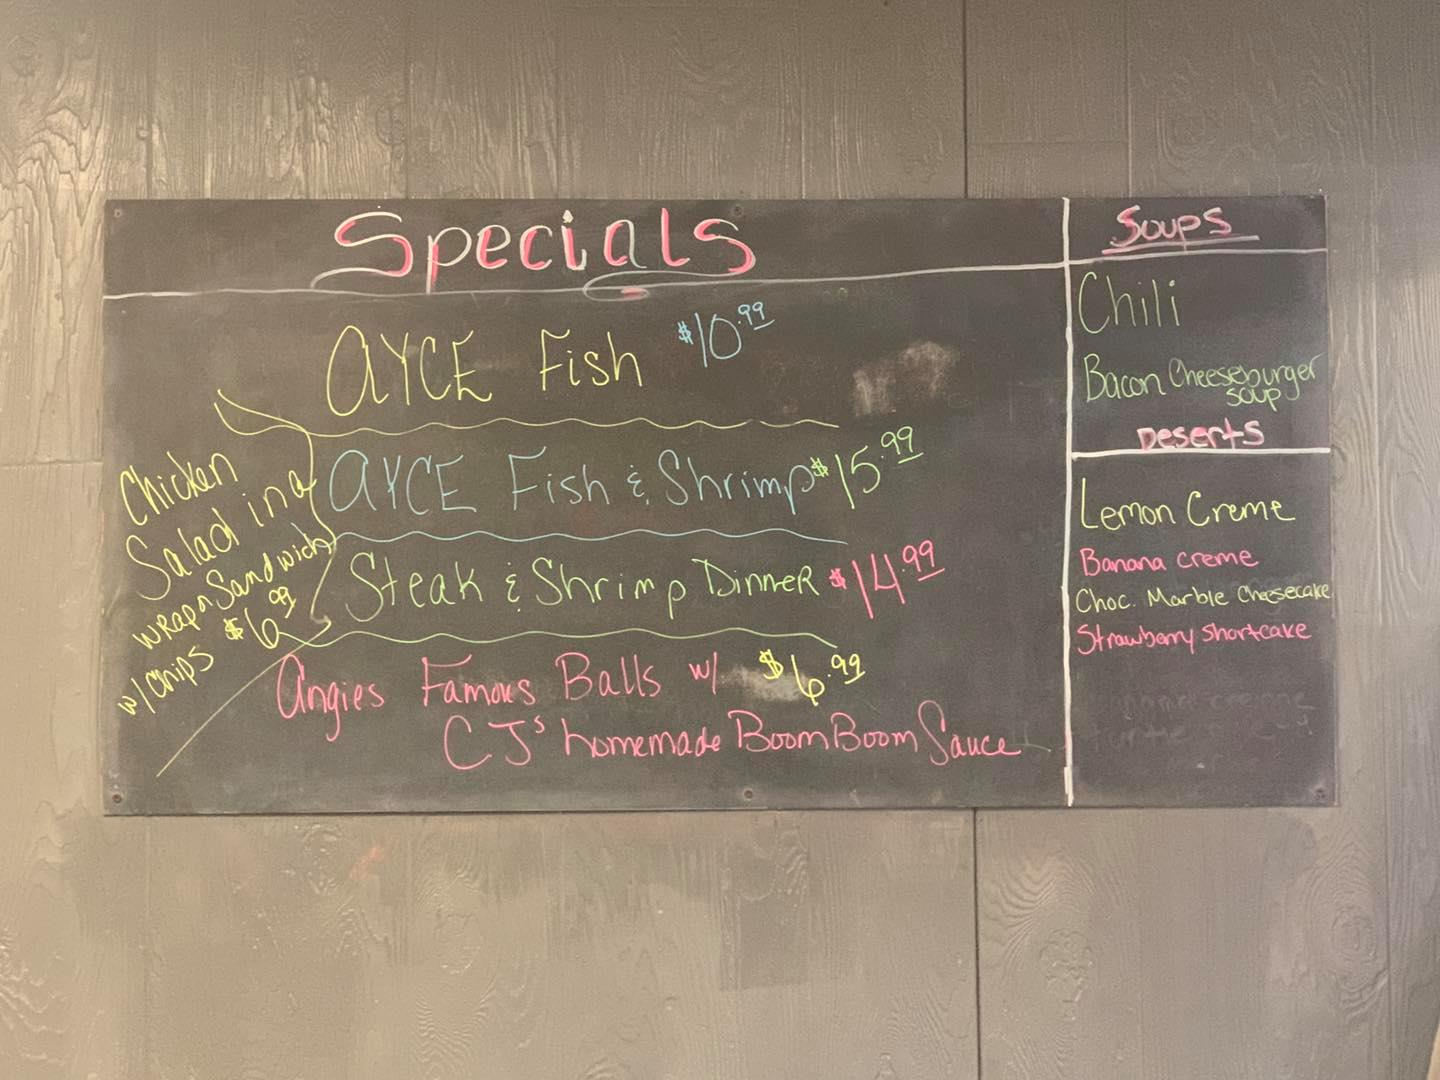 Specials
AYCE Fish $10.99
AYCE Fish & Shrimp $15.99
Steak & Shrimp Dinner $14.99
Angies Famous Balls w/ $6.99
CJs homemade Boom Boom Sauce
Chicken
Salad in a
wrap n Sandwich
w/ chips $6.99
Soups
Chili
Bacon Cheeseburger
soup
Deserts
Lemon Creme
Banana creme
Choc. Marble Cheesecake
Strawberry Shortcake